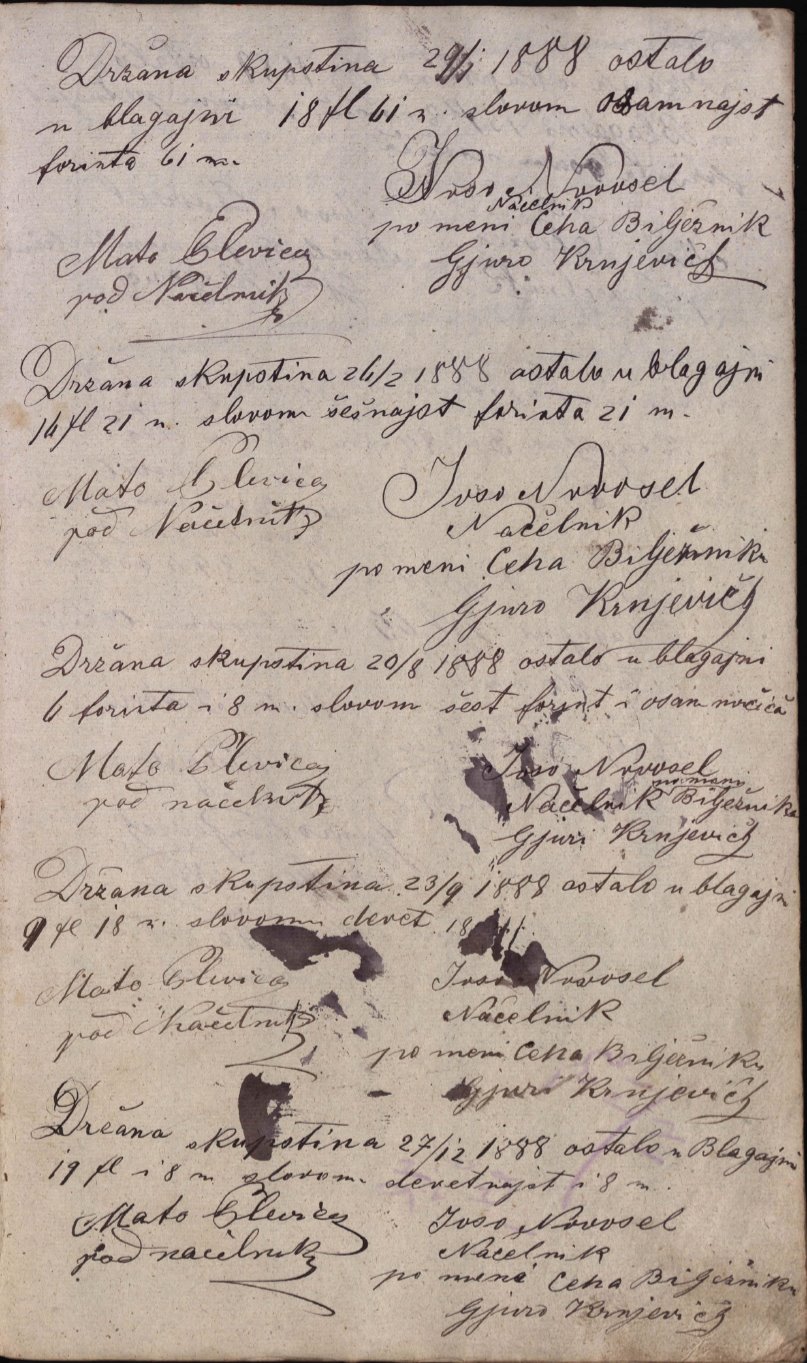 Držána skupština 29/1 1888 ostalo
u blagajni 18 fl 61 n. slovom osamnajst
forinta 61 n.
Joso Novosel
Načelnik
po meni Ceha Bilježnik
Mato Plevica Gjuro Krnjevič
pod Načelnik
Držána skupština 26/2 1888 ostalo u blagajni
16 fl 21 n. slovom šešnajst forinta 21 n.
Mato Plevica Joso Novosel
pod Načelnik Načelnik
po meni Ceha Bilježniku
Gjuro Krnjevič
Držána skupština 20/8 1888 ostalo u blagajni
6 forinta i 8 n. slovom šest forint i osam novčića
Mato Plevica Joso Novosel
pod načelnik po meni
Načelnik Bilježniku
Gjuri Krnjevič
Držana skupština 23/9 1888 ostalo u blagajni
9 fl 18 n. slovom devet 18
Mato Plevica Joso Novosel
pod Načelnik Načelnik
po meni Ceha Bilježniku
Gjuri Krnjevič
Držána skupština 27/12 1888 ostalo u Blagajni
19 fl i 8 n slovom devetnajst i 8 n.
Mato Plevica Joso Novosel
pod načelnik Načelnik
po meni Ceha Bilježniku
Gjuro Krnjevič